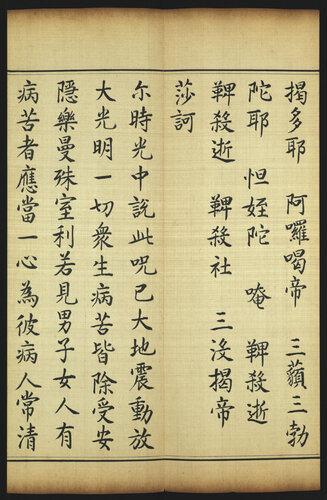 揭多耶　阿囉喝帝　三藐三勃
陀耶　怛姪陀　唵　鞞殺逝
鞞殺逝　鞞殺社　三沒揭帝
莎訶
尒時光中說此呪已大地震動放
大光明一切眾生病苦皆除受安
隱樂曼殊室利若見男子女人有
病苦者應當一心為彼病人常清